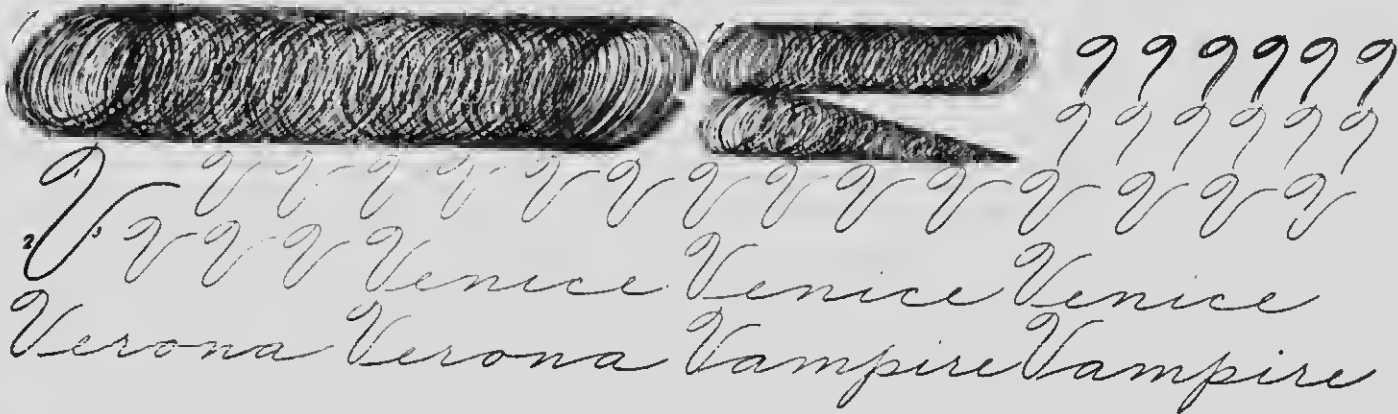 V V V V V V V V V V V V V V V
2 3 V V V Venice Venice Venice
Verona Verona Vampire Vampire